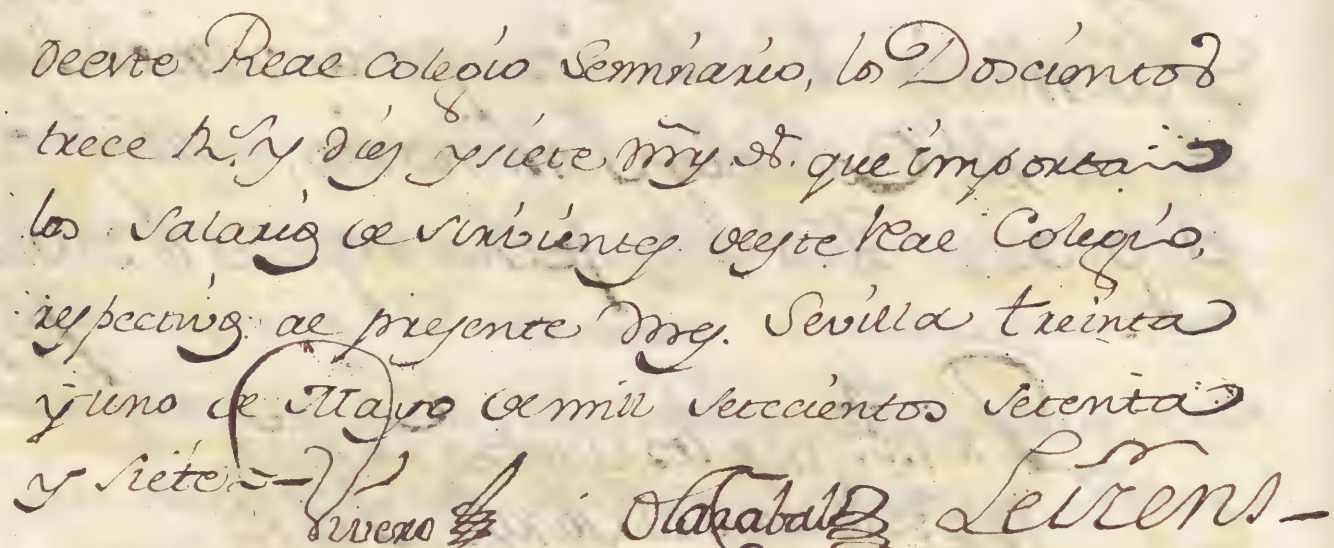 deeste Real Colegio Seminario, los Doscientos
trece R.s y diez y siete mrs. vn. que importan
los Salarios de sirvientes deeste Real Colegio,
respectivos al presente mes. Sevilla treinta
y uno de Mayo de mill setecientos setenta
y siete =
Rivero Olazabal Leirens